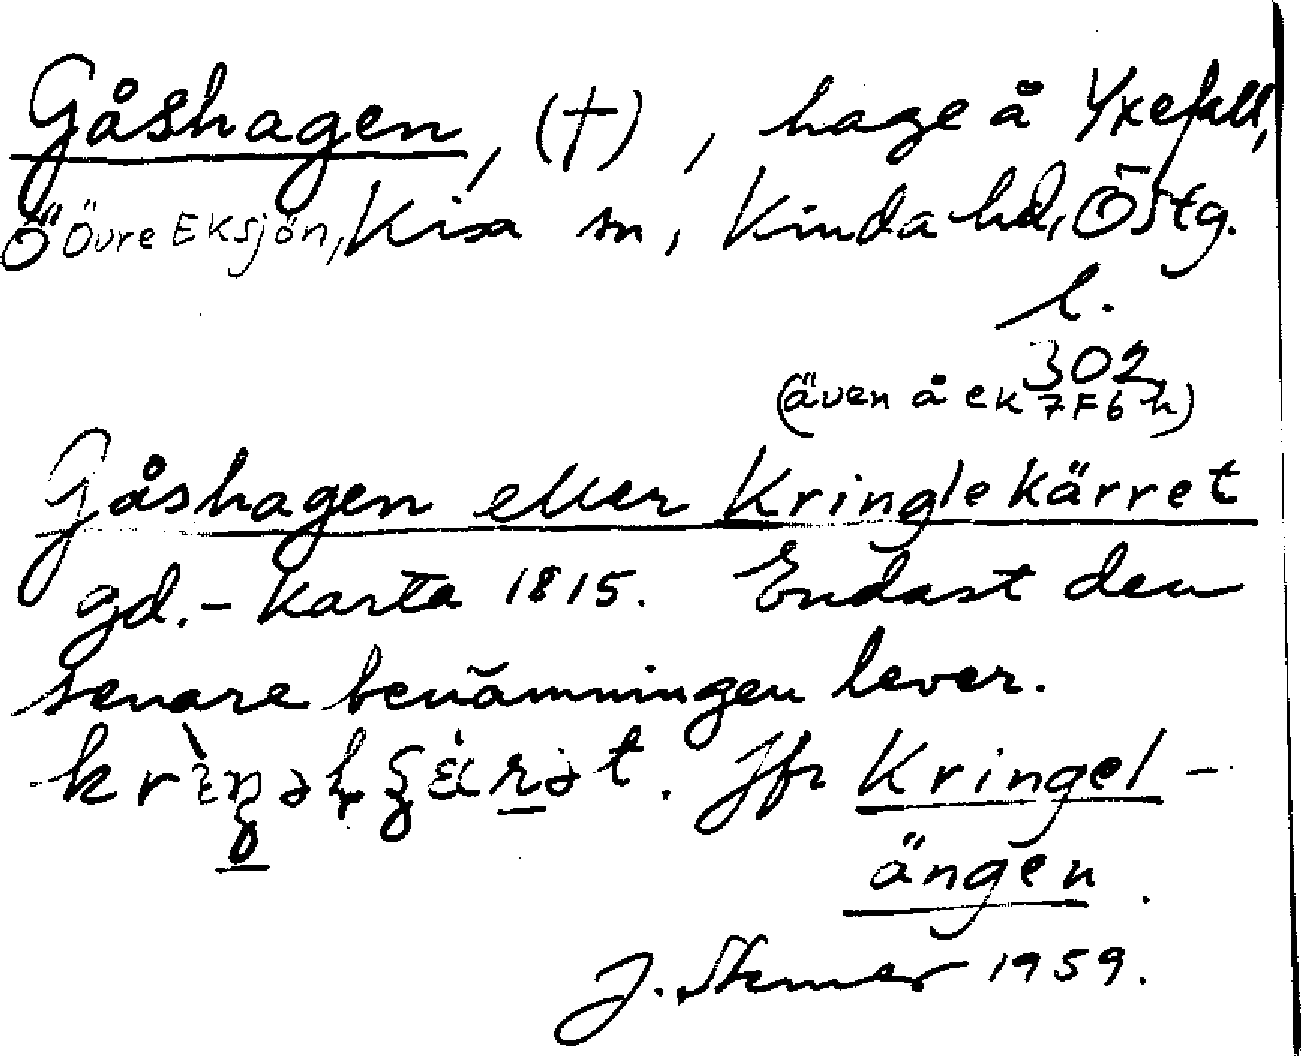 Gåshagen, (†), hage å Yxefall,
Ö Övre Eksjön, Kisa sn, Kinda hd, Östg.
l.
302
(även å ek 7F6h)
Gåshagen eller Kringlekärret
gd.-karta 1815. Endast den
senare benämningen lever.
Jfr Kringel-
ängen.
J. 1959.